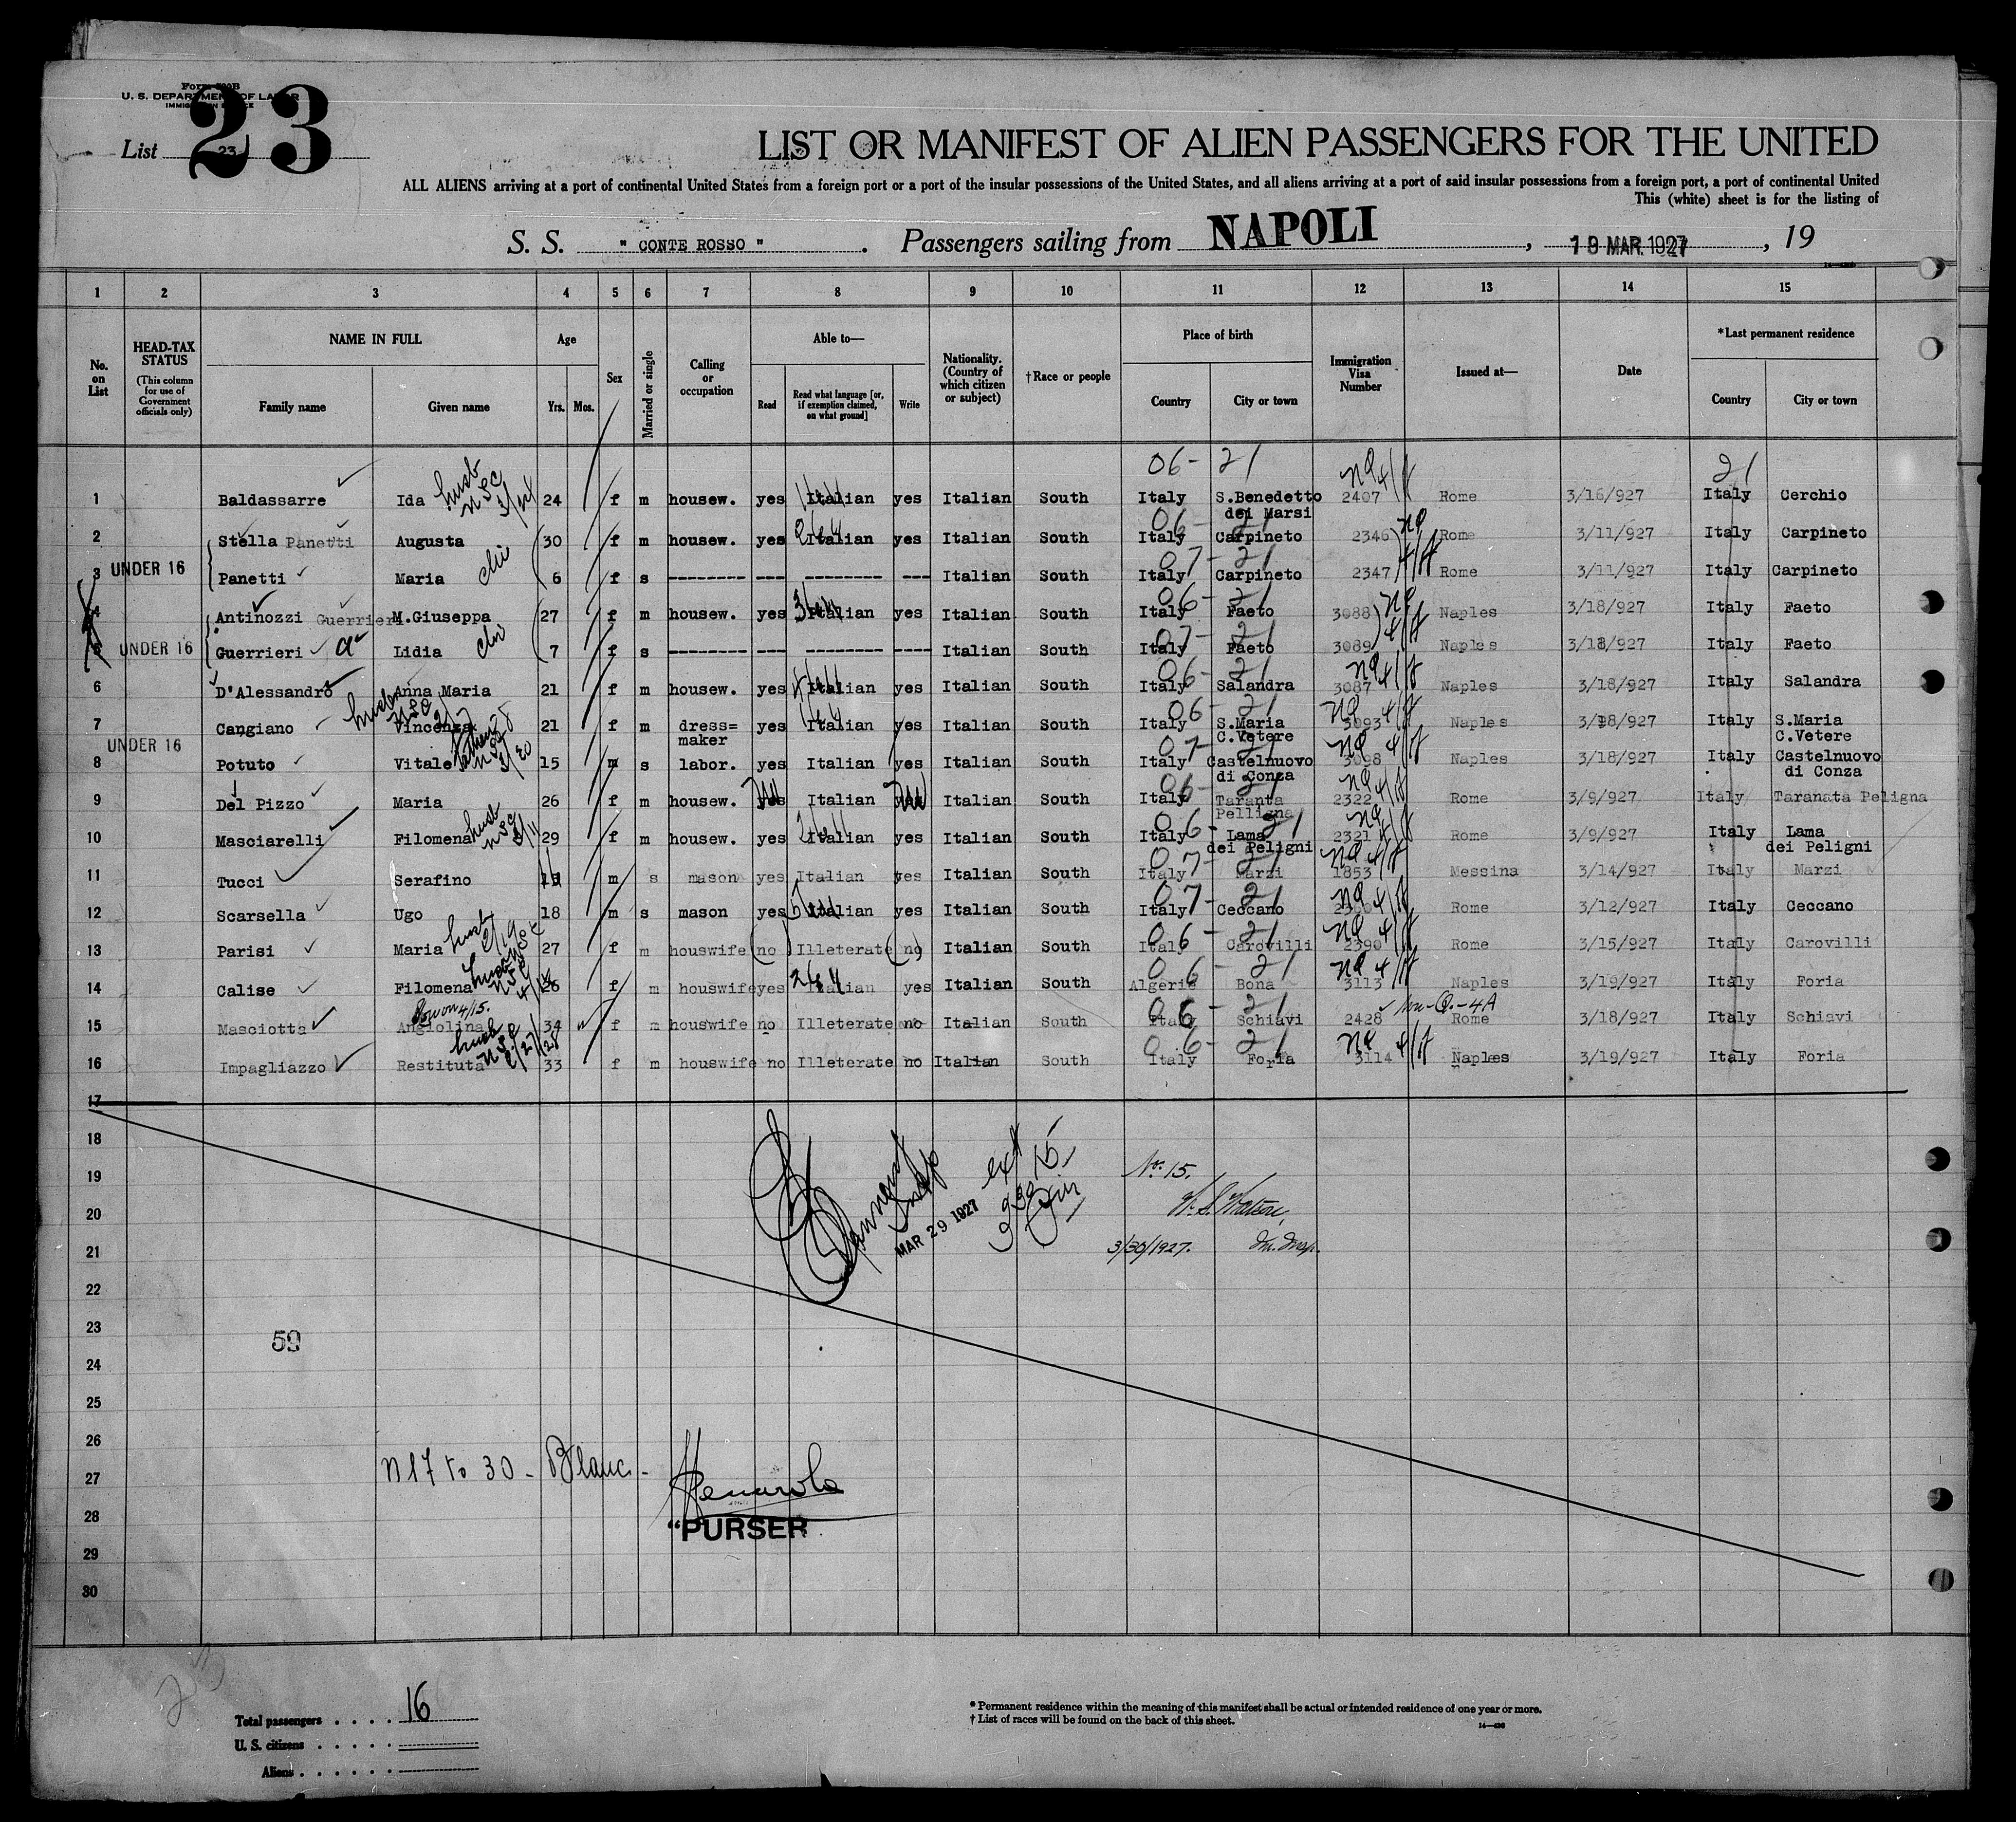 Form 500B
U. S. DEPARTMENT OF LABOR
IMMIGRATION SERVICE
23
List 23
LIST OR MANIFEST OF ALIEN PASSENGERS FOR THE UNITED
ALL ALIENS arriving at a port of continental United States from a foreign port or a port of the insular possessions of the United States, and all aliens arriving at a port of said insular possessions from a foreign port, a port of continental United
This (white) sheet is for the listing of
S. S. " CONTE ROSSO " . Passengers sailing from NAPOLI , 19 MAR. 1927 , 19
1 2 3 4 5 6 7 8 9 10 11 12 13 14 15
No. on List
HEAD-TAX STATUS
(This column for use of Government officials only)
NAME IN FULL
Family name
Given name
Age
Yrs. Mos.
Sex
Married or single
Calling or occupation
Able to—
Read
Read what language [or, if exemption claimed, on what ground]
Write
Nationality. (Country of which citizen or subject)
†Race or people
Place of birth
Country
City or town
Immigration Visa Number
Issued at—
Date
*Last permanent residence
Country
City or town
06- 21 21
1 Baldassarre Ida husb 24 f m housew. yes Italian yes Italian South Italy S.Benedetto dei Marsi 2407 Rome 3/16/927 Italy Cerchio
06 - 21
2 Stella Panetti Augusta 30 f m housew. yes Italian yes Italian South Italy Carpineto 2346 Rome 3/11/927 Italy Carpineto
07 - 21
3 UNDER 16 Panetti Maria 6 f s -------- --- -------- --- Italian South Italy Carpineto 2347 Rome 3/11/927 Italy Carpineto
06 - 21
4 Antinozzi Guerrieri M.Giuseppa 27 f m housew. yes Italian yes Italian South Italy Faeto 3088 Naples 3/18/927 Italy Faeto
07 - 21
5 UNDER 16 Guerrieri Lidia 7 f s -------- --- -------- ---- Italian South Italy Faeto 3089 Naples 3/18/927 Italy Faeto
06 - 21
6 D'Alessandro Anna Maria 21 f m housew. yes Italian yes Italian South Italy Salandra 3087 Naples 3/18/927 Italy Salandra
06 - 21
7 Cangiano Vincenza 21 f m dress=maker yes Italian yes Italian South Italy S.Maria C.Vetere 3093 Naples 3/18/927 Italy S.Maria C.Vetere
07 - 21
8 UNDER 16 Potuto Vitale 15 m s labor. yes Italian yes Italian South Italy Castelnuovo di Conza 3098 Naples 3/18/927 Italy Castelnuovo di Conza
06 - 21
9 Del Pizzo Maria 26 f m housew. yes Italian Italian South Italy Taranta Pelligna 2322 Rome 3/9/927 Italy Taranata Peligna
06 - 21
10 Masciarelli Filomena husb 29 f m housew. yes Italian yes Italian South Italy Lama dei Peligni 2321 Rome 3/9/927 Italy Lama dei Peligni
07 21
11 Tucci Serafino m s mason yes Italian yes Italian South Italy Marzi 1853 Messina 3/14/927 Italy Marzi
07 - 21
12 Scarsella Ugo 18 m s mason yes Italian yes Italian South Italy Ceccano Rome 3/12/927 Italy Ceccano
06 - 21
13 Parisi Maria husb 27 f m houswife no Illeterate no Italian South Italy Carovilli 2390 Rome 3/15/927 Italy Carovilli
06 - 21
14 Calise Filomena f m houswife yes Italian yes Italian South Algeria Bona 3113 Naples 3/19/927 Italy Foria
06 - 21
15 Masciotta Angiolina 34 f m houswife no Illeterate no Italian South Italy Schiavi 2428 Rome 3/18/927 Italy Schiavi
06 - 21
16 Impagliazzo Restituta husb 33 f m houswife no Illeterate no Italian South Italy Foria 3114 Naples 3/19/927 Italy Foria
17
18
19 No. 15.
20
21 MAR 29 1927 3/30/1927.
22
23
59
24
25
26
N 17 to 30 - Blanc -
27
28 "PURSER
29
30
Total passengers . . . . 16
U. S. citizens . . . . .
Aliens . . . . . .
* Permanent residence within the meaning of this manifest shall be actual or intended residence of one year or more.
† List of races will be found on the back of this sheet.